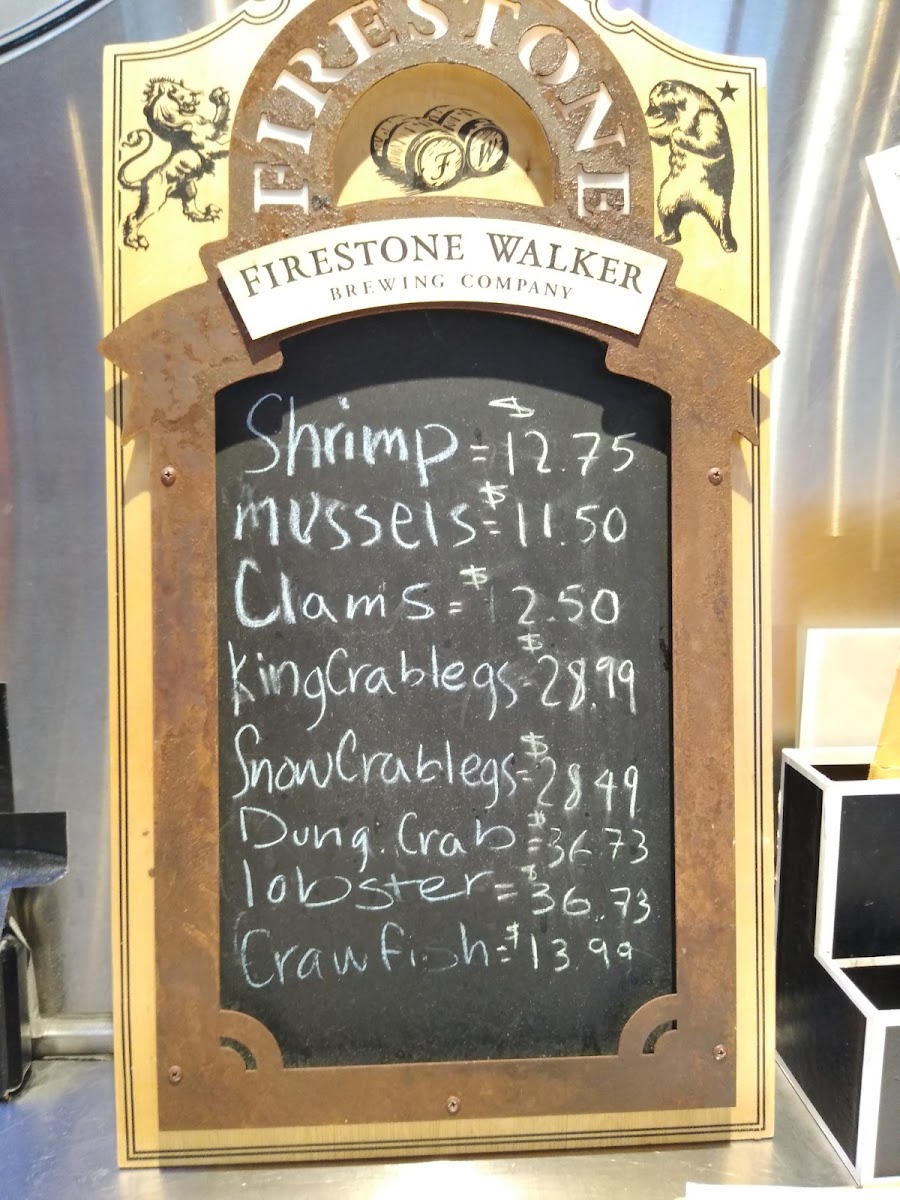 FIRESTONE
F W
FIRESTONE WALKER
BREWING COMPANY
Shrimp = $12.75
mussels = $11.50
Clams = $12.50
King Crab legs = $28.99
Snow Crab legs = $28.49
Dung. Crab = $36.73
lobster = $36.73
Crawfish = $13.99